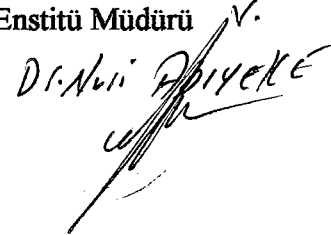 Enstitü Müdürü V.
Dr. Nuri ADIYEKE